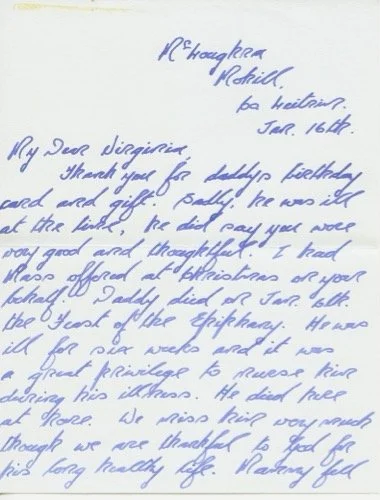 Mohill,
Co Leitrim.
Jan. 16th.
My Dear Virginia,
Thank you for daddys birthday
card and gift. Sadly, he was ill
at the time, he did say you were
very good and thoughtful. I had
Mass offered at Christmas on your
behalf. Daddy died on Jan. 6th.
the Feast of the Epiphany. He was
ill for six weeks and it was
a great privilege to nurse him
during his illness. He died here
at home. We miss him very much
though we are thankful to God for
his long healthy life. Mammy fell